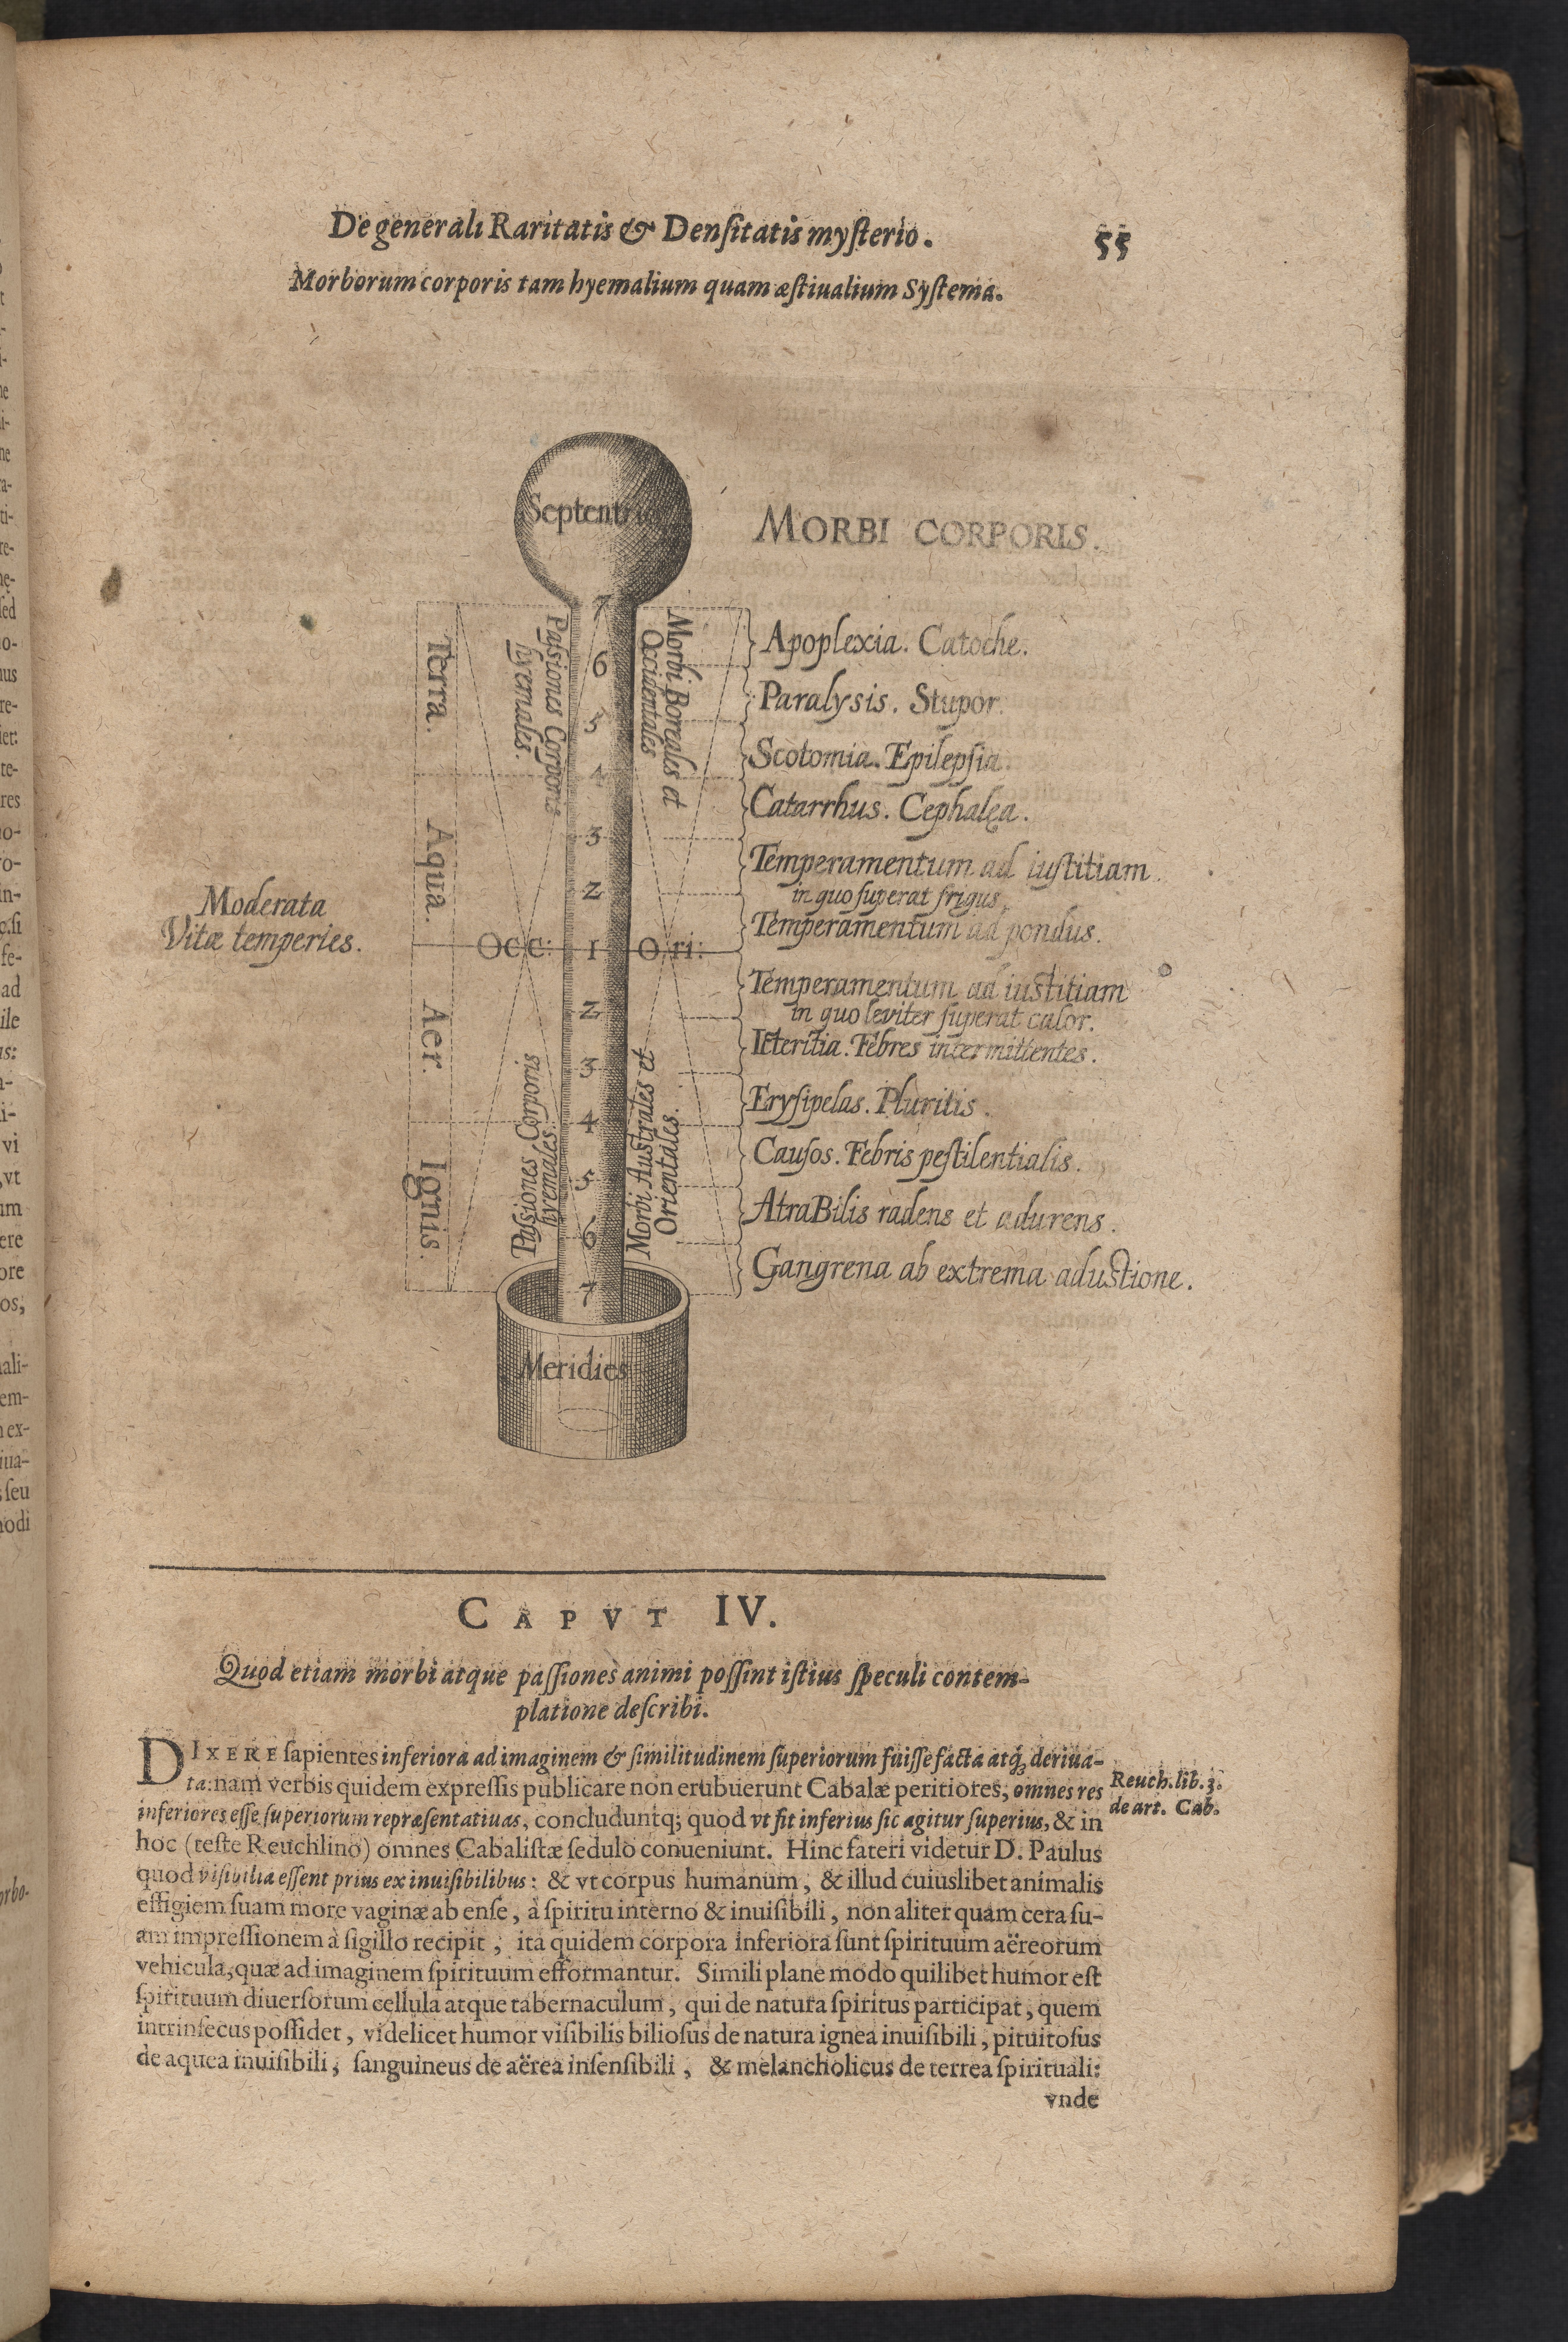 De generali Raritatis & Densitatis mysterio. 55
Morborum corporis tam hyemalium quam æstiualium Systema.
Septentrio
MORBI CORPORIS.
7
6
5
4
3
2
Occ: 1 Ori:
2
3
4
5
6
7
Meridies
Terra.
Aqua.
Aer.
Ignis.
Passiones Corporis
hyemales.
Morbi Boreales et
Occidentales
Passiones Corporis
hyemales.
Morbi Australes et
Orientales.
Moderata
Vitæ temperies.
Apoplexia. Catoche.
Paralysis. Stupor.
Scotomia. Epilepsia.
Catarrhus. Cephalęa.
Temperamentum ad iustitiam
in quo superat frigus.
Temperamentum ad pondus.
Temperamentum ad iustitiam
in quo leviter superat calor.
Icteritia. Febres intermittentes.
Erysipelas. Pluritis.
Causos. Febris pestilentialis.
Atra Bilis radens et adurens.
Gangrena ab extrema adustione.
CAPVT IV.
Quod etiam morbi atque passiones animi possint istius speculi contem-
platione describi.
DIXERE sapientes inferiora ad imaginem & similitudinem superiorum fuisse facta atq; deriua-
ta: nam verbis quidem expressis publicare non erubuerunt Cabalæ peritiores, omnes res
inferiores esse superiorum repræsentatiuas, concluduntq; quod vt fit inferius sic agitur superius, & in
hoc (teste Reuchlino) omnes Cabalistæ sedulo conueniunt. Hinc fateri videtur D. Paulus
quod visibilia essent prius ex inuisibilibus: & vt corpus humanum, & illud cuiuslibet animalis
effigiem suam more vaginæ ab ense, à spiritu interno & inuisibili, non aliter quàm cera su-
am impressionem à sigillo recipit, ita quidem corpora inferiora sunt spirituum aëreorum
vehicula, quæ ad imaginem spirituum efformantur. Simili plane modo quilibet humor est
spirituum diuersorum cellula atque tabernaculum, qui de natura spiritus participat, quem
intrinsecus possidet, videlicet humor visibilis biliosus de natura ignea inuisibili, pituitosus
de aquea inuisibili, sanguineus de aërea insensibili, & melancholicus de terrea spirituali:
vnde
Reuch. lib. 3.
de art. Cab.